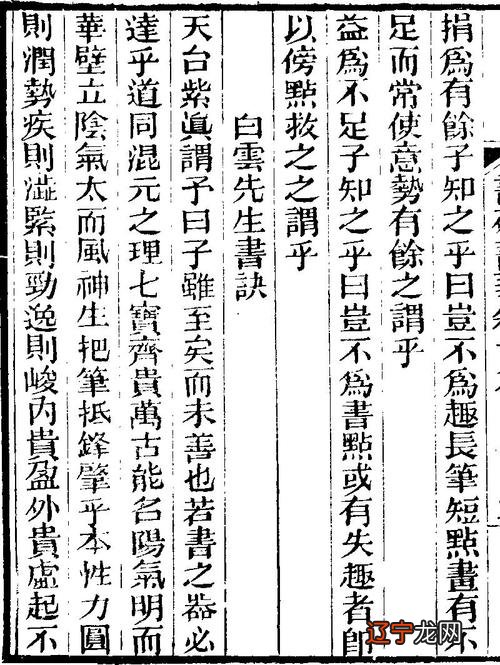 損爲有餘子知之乎曰豈不爲趣長筆短點畫有不
足而常使意勢有餘之謂乎
益爲不足子知之乎曰豈不爲書點或有失趣者即
以傍點救之之謂乎
白雲先生書訣
天台紫眞謂予曰子雖至矣而未善也若書之器必
達乎道同混元之理七寶齊貴萬古能名陽氣明而
華壁立陰氣太而風神生把筆抵鋒肇乎本性力圓
則潤勢疾則澁緊則勁逸則峻內貴盈外貴虛起不
辽宁龙网